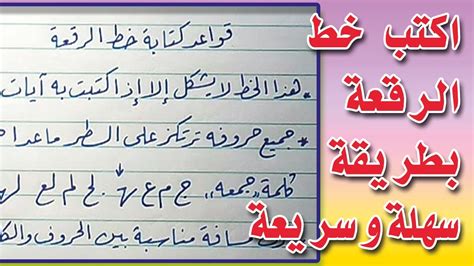 قواعد كتابة خط الرقعة
* هذا الخط لا يشكل إلا إذا كتبت به آيات
* جميع حروفه ترتكز على السطر ماعدا ح
كلمة "جمعه" ج م ع ه لج لم لع له
مسافة مناسبة بين الحروف والك
اكتب خط
الرقعة
بطريقة
سهلة وسريعة